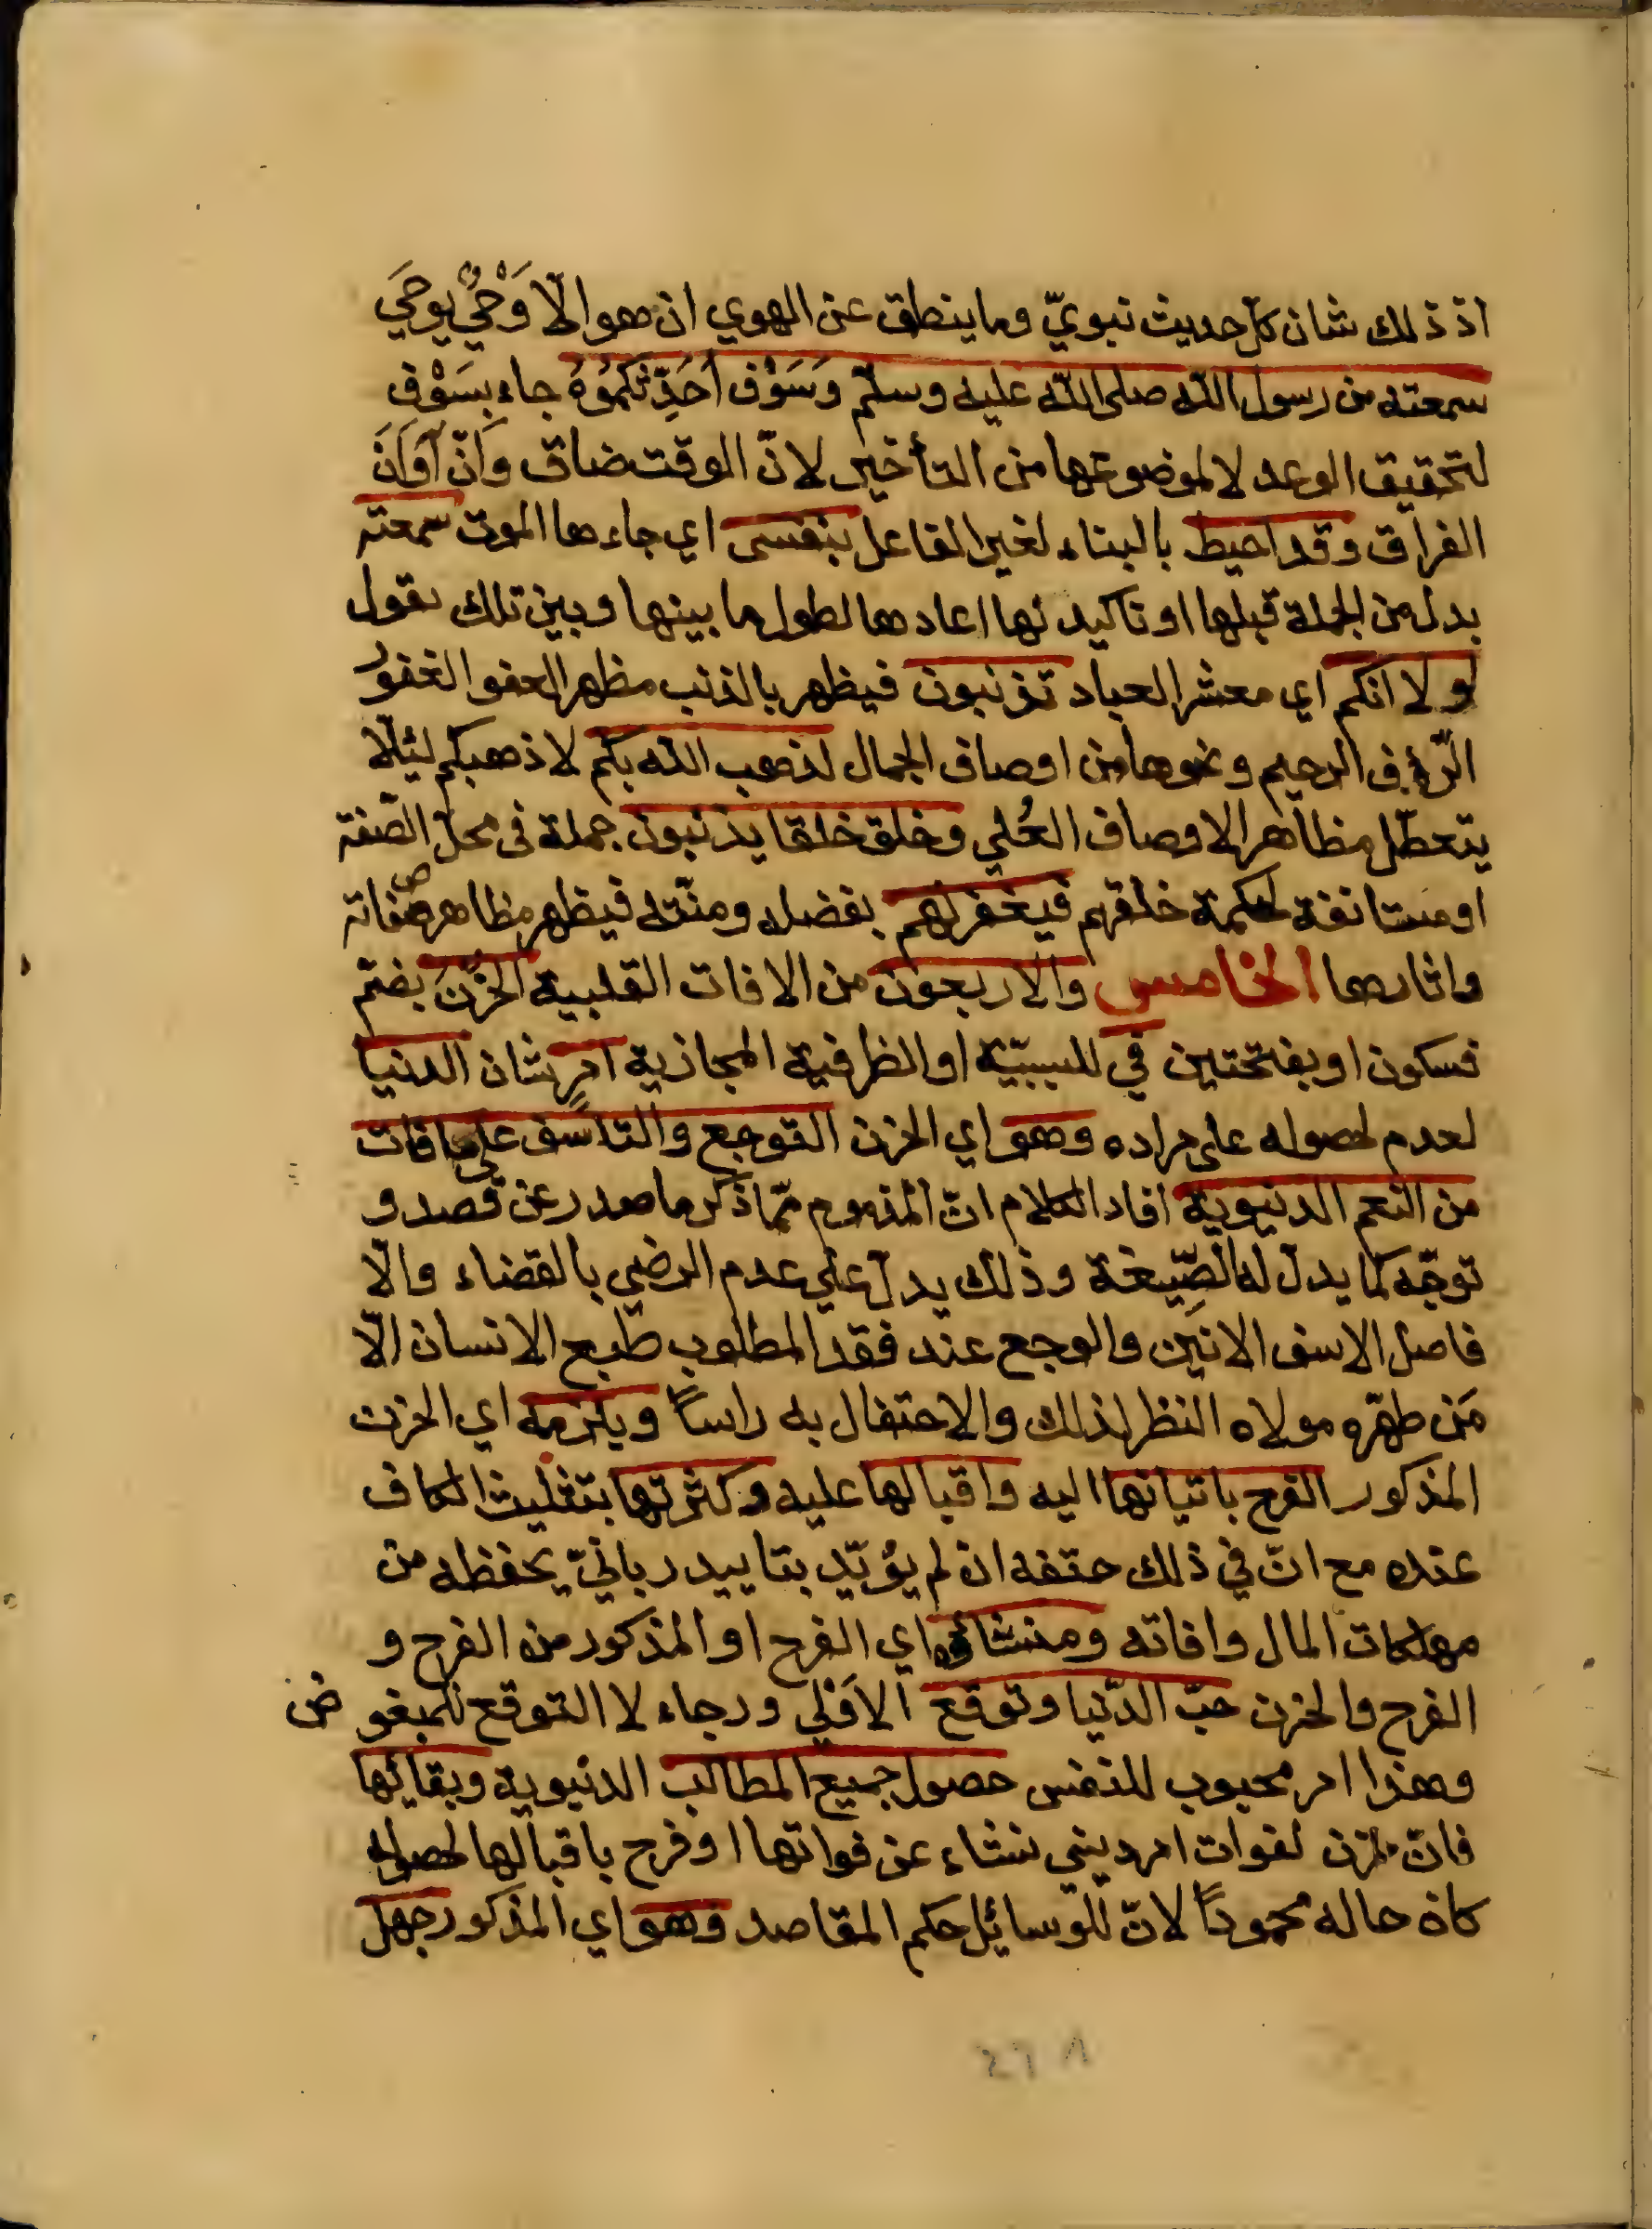 اذ ذلك شان كل حديث نبويّ وما ينطق عن الهوي ان هو الّا وَحْيٌ يوحَي
سمعته من رسول الله صلى الله عليه وسلّم وَسَوْف اُحَدِّثكمُوُهُ جاء بسَوْف
لتحقيق الوعد لا لموضوعها من التأخير لانّ الوقت ضاق وَانّ آوَانَ
الفراق وقد احيط بالبناء لغير الفاعل بنفسى اي جاءها الموت سمعته
بدل من الجملة قبلها او تاكيد لها اعادها لطول ما بينها وبين تلك يقول
لولا انكم اي معشر العباد تذنبون فيظهر بالذنب مظهر العفو الغفور
الرّؤف الرحيم ونحوها من اوصاف الجمال لذهب الله بكم لاذهبكم لئيلّا
يتعطّل مظاهر الاوصاف العُلي وخلق خلقا يذنبون جملة فى محل الصّفة
او مستانفة لحكمة خلقهم فيغفر لهم بفضله ومنّته فيظهر مظاهر صفاته
واثارها الخامس والاربعون من الافات القلبية الحُزْنَ بضمّ
فسكون او بفتحتين في للسببيّة او الظرفية المجازية امرٍ شان الدنيا
لعدم لحصوله على مراده وهو اي الحزن التوجع والتاسّف على ما فات
من النعم الدنيوية افاد الكلام انّ المذموم ممّا ذكر ما صدر عن قصد و
توجّه كما يدل له الصِّيغة وذلك يدل علي عدم الرضي بالقضاء والّا
فاصل الاسف الانين والوجع عند فقد المطلوب طبع الانسان الّا
مَن طهّره مولاه النظر لذلك والاحتفال به راساً ويلزمه اي الحزن
المذكور الفرح باتيانها اليه واقبالها عليه وكثرتها بتثليث الكاف
عنده مع انّ في ذلك حتفه ان لم يؤيّد بتاييد ربانيّ يحفظه من
مهلكات المال وافاته ومنشاؤه اي الفرح او المذكور من الفرح و
الفرح والحزن حبّ الدّنيا وتوقع الاَوْلي ورجاء لا التوقع للمبغوض
وهذا امر محبوب للنفس حصول جميع المطالب الدنيوية وبقائها
فانّ حزن لفوات امر ديني نشاء عن فواتها او فرح باقبالها لحصوله
كان حاله محموداً لانّ للوسائل حكم المقاصد وهو اي المذكور جهل